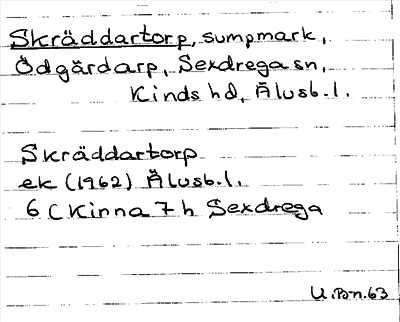 Skräddartorp, sumpmark,
Ödgärdarp, Sexdrega sn,
Kinds hd, Älvsb. l.
Skräddartorp
ek (1962) Älvsb. l.
6 C Kinna 7 h Sexdrega
U. Bn. 63